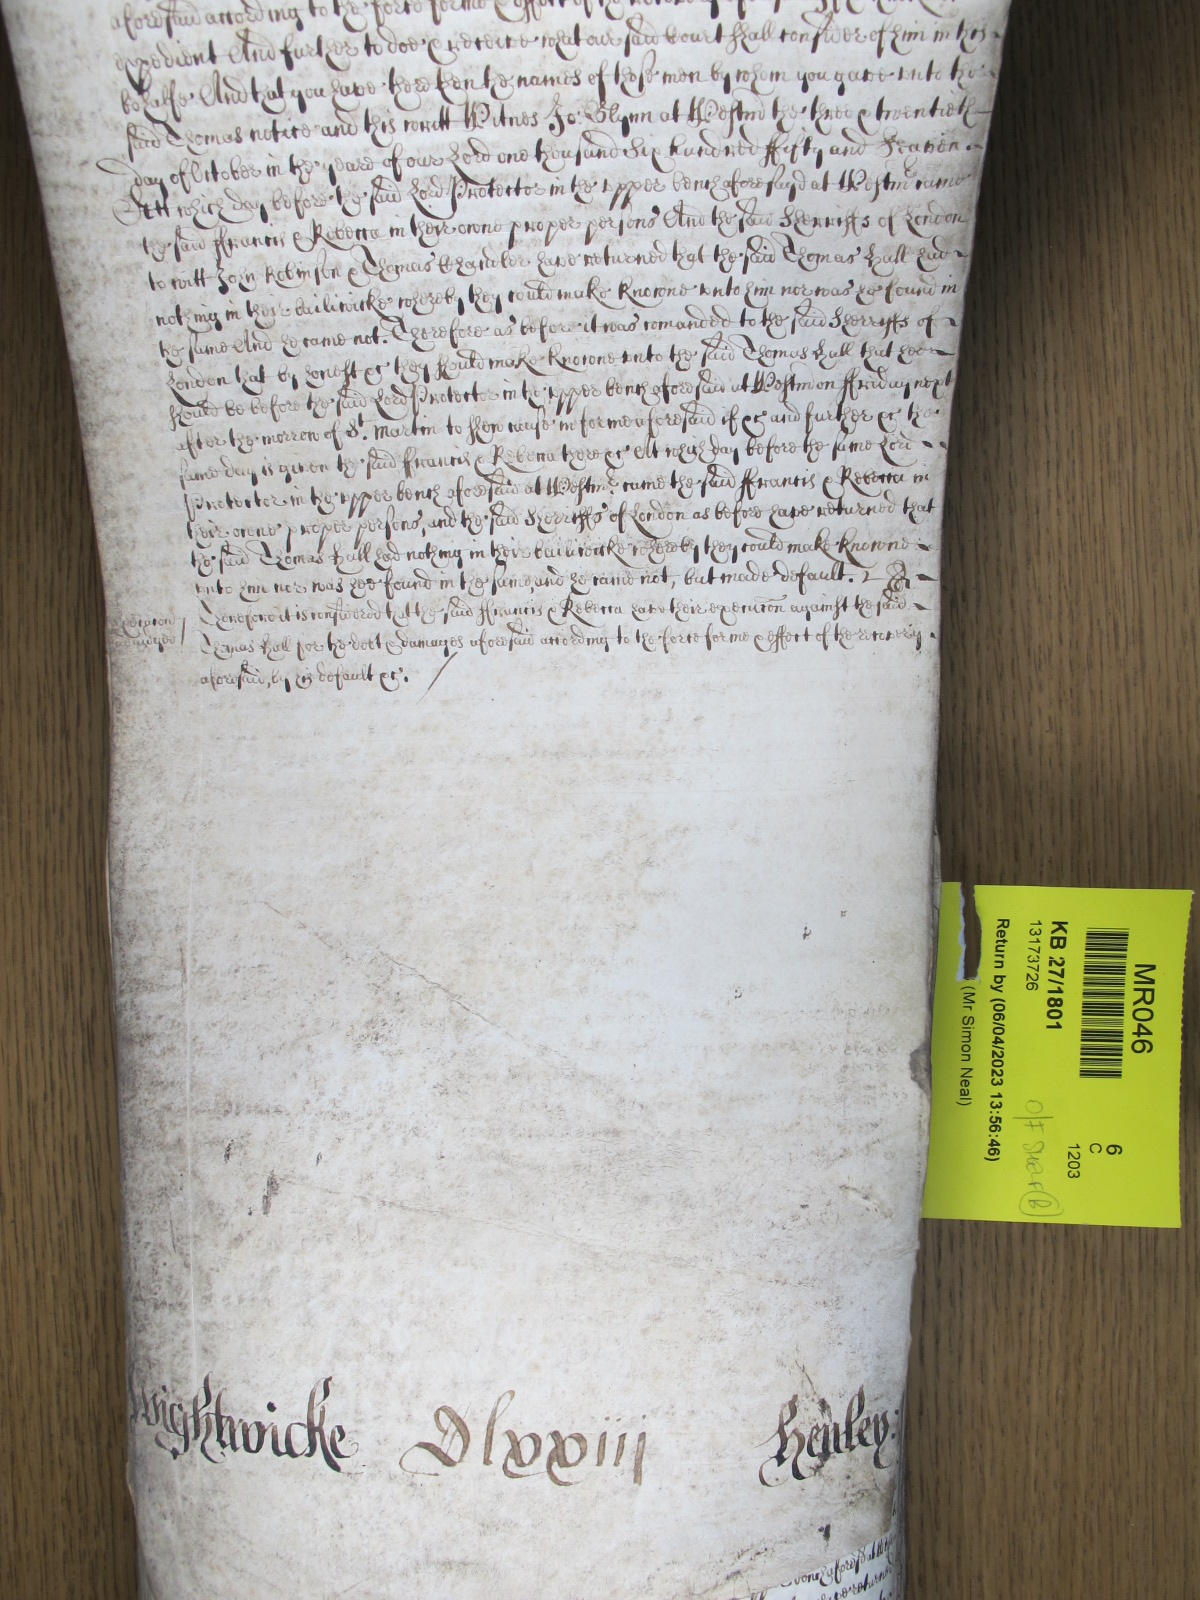 aforesaid according to the force forme & effect of the recovery
expedient And further to doe & receive what our said Court shall consider of him in this
behalfe And that you have there then the names of those men by whom you gave unto the
said Thomas notice and this writt Witnes Jo: Glynn at Westmr the three & twentieth
day of October in the yeare of our Lord one thousand six hundred ffifty and Seaven.
Att which day before the said Lord Protector in the upper bench aforesayd at Westmr came
the said ffrancis & Rebecca in their owne proper persons And the said Sherriffs of London
to witt John Robinson & Thomas Chandler have returned that the said Thomas Hall had
nothing in their bailiwicke whereby they could make knowne unto him nor was he found in
the same And he came not. Therefore as before it was comanded to the said Sherriffs of
London that by honest &c they should make knowne unto the said Thomas Hall that hee
should be before the said Lord Protector in the upper bench aforesaid at Westm on ffriday next
after the morrow of St. Martin to shew cause in forme aforesaid if &c and further &c the
same day is given the said ffrancis & Rebecca there &c At which day before the same Lord
Protector in the upper bench aforesaid at Westmr. came the said ffrancis & Rebecca in
their owne proper persons, and the said Sherriffs of London as before have returned that
the said Thomas Hall had nothing in their bailiwicke whereby they could make knowne
unto him nor was hee found in the same, and he came not, but made default.
Therefore it is considered that the said ffrancis & Rebecca have their execucon against the said
Thomas Hall for the debt & damages aforesaid according to the force forme & effect of the recovery
aforesaid, by his default &c.
Wightwicke Dlxxiiij Henley:
MR046
KB 27/1801
13173726
Return by (06/04/2023 13:56:46)
(Mr Simon Neal)
6
C
1203
O/F
B